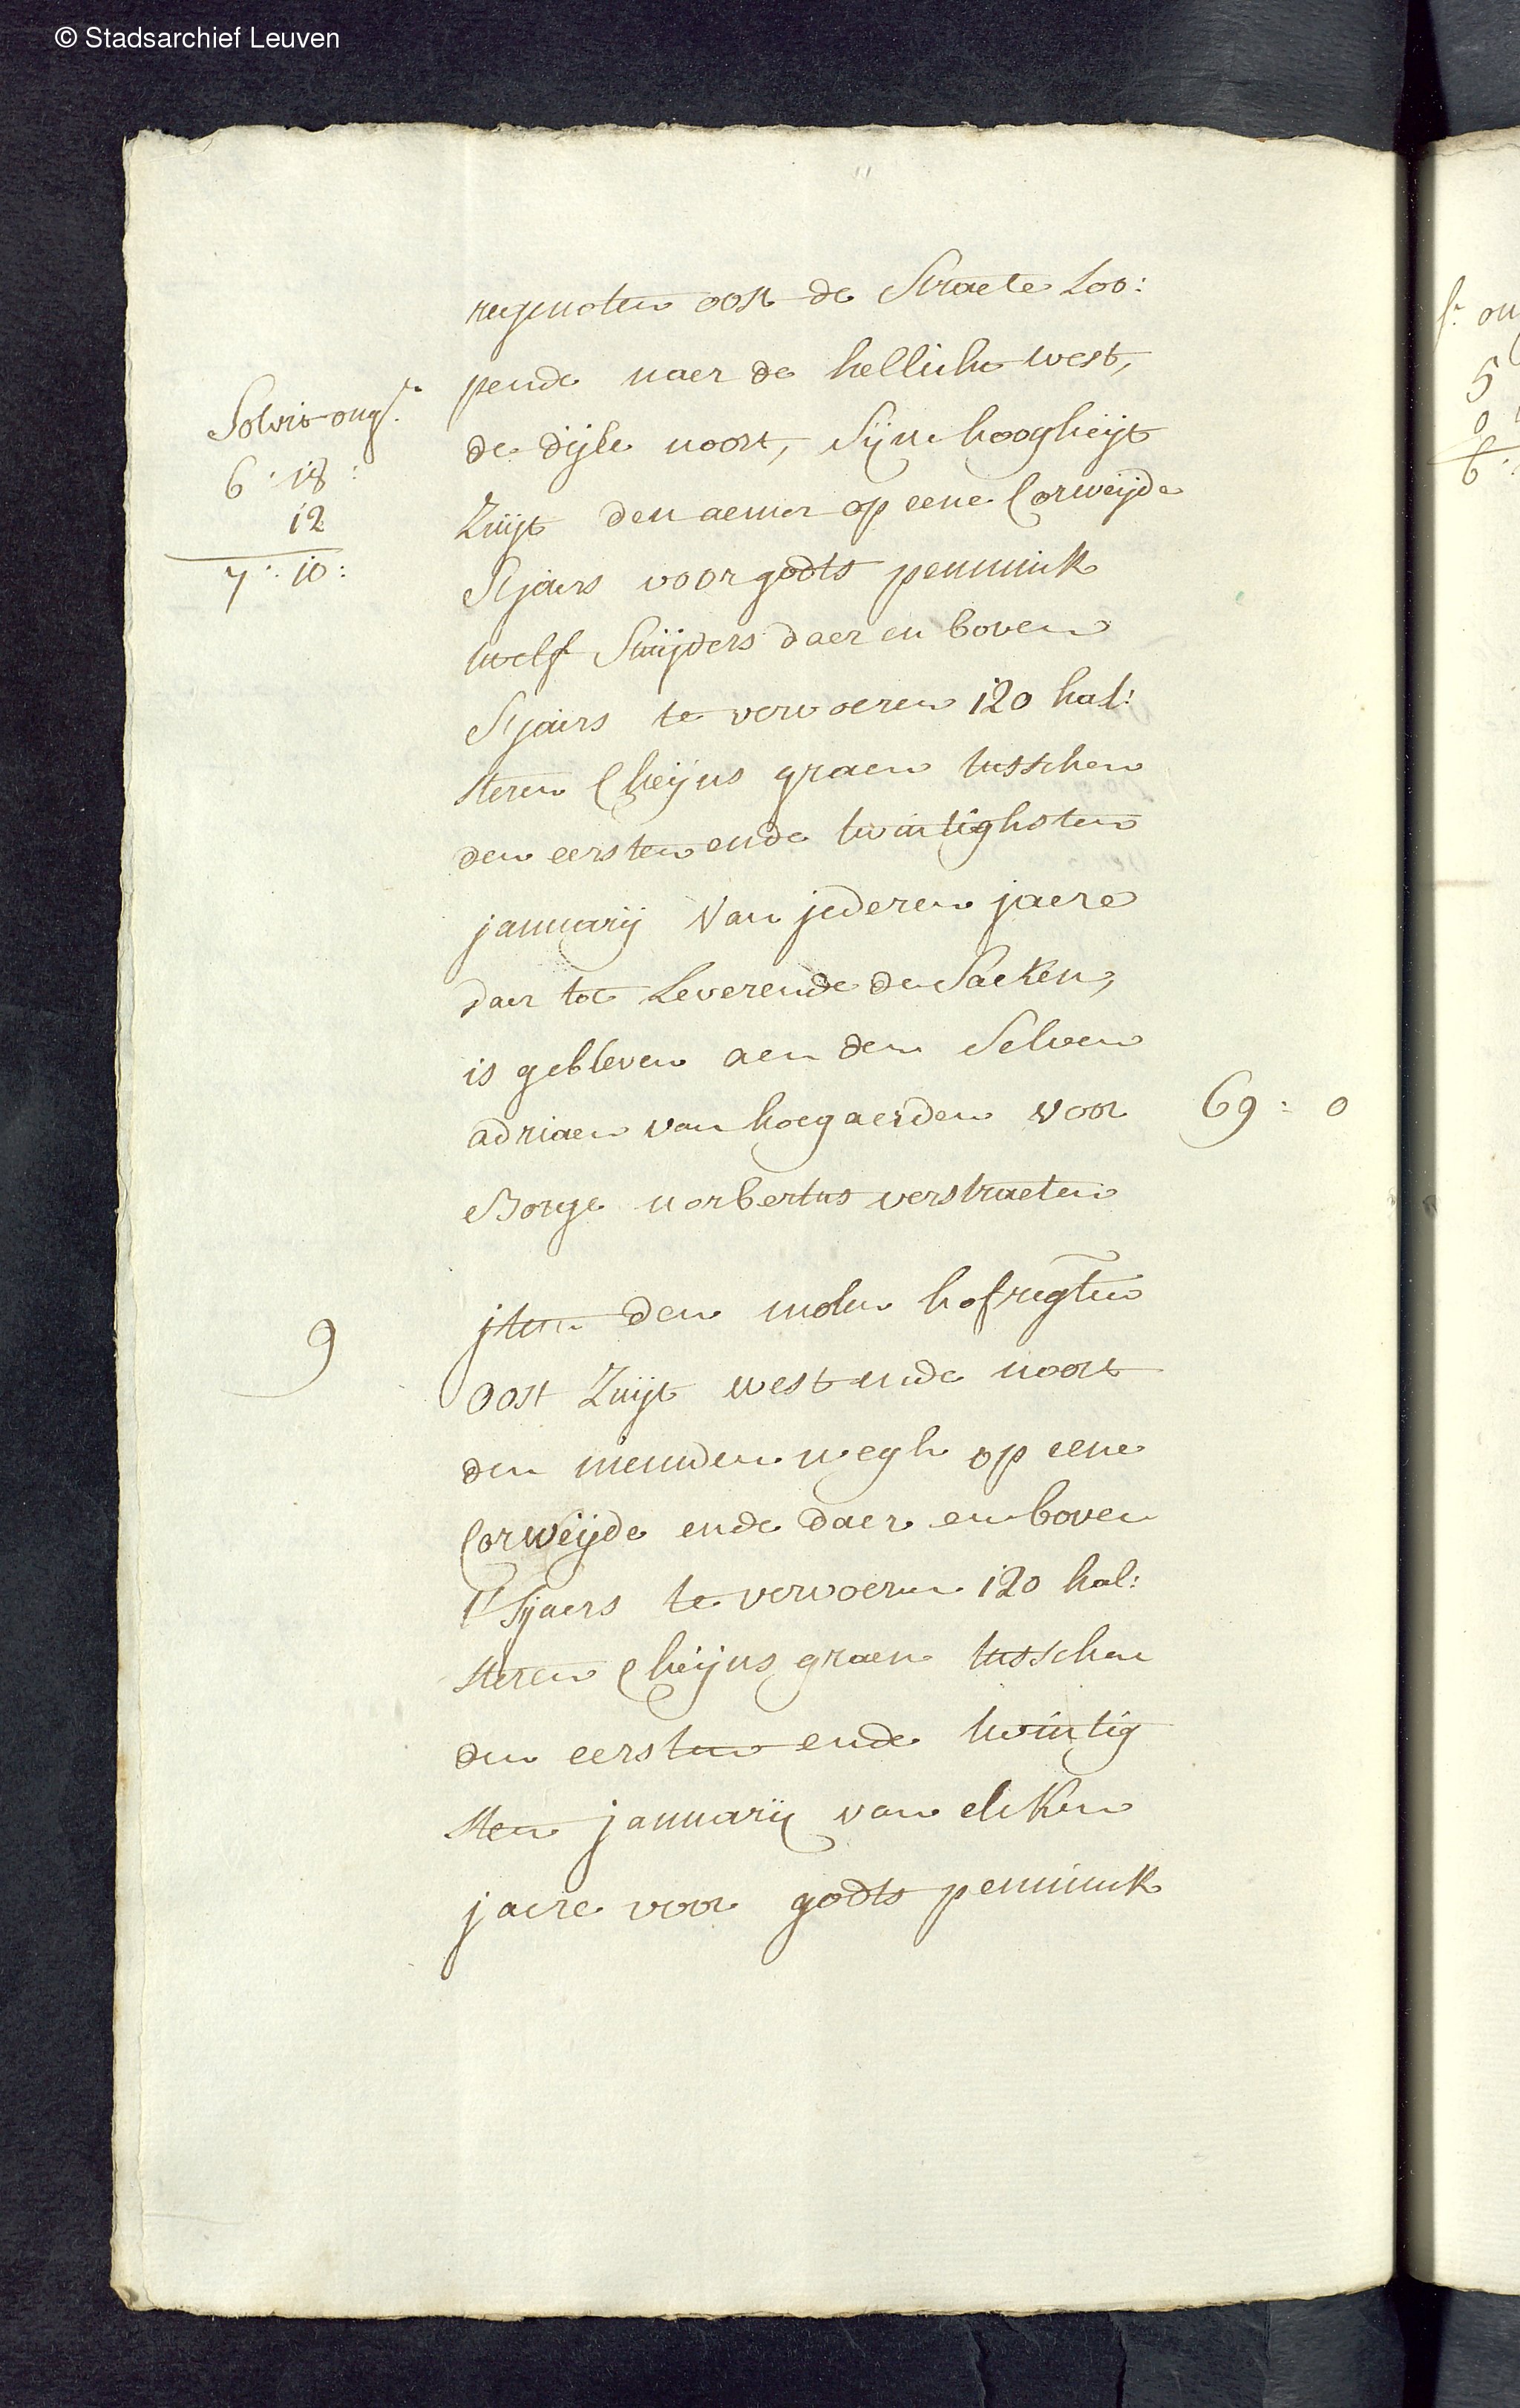 © Stadsarchief Leuven
regenoten oost de Straete Loo:
pende naer de hellicht west,
de dijle noort, Sijne hoogheijt
Zuijt den aemer op eene Corweijde
Sjaers voor godts pennink
twelf Stuijvers daer en boven
Sjaers te vervoeren 120 hal:
steren Cheijns graen tusschen
den eersten ende twintighsten
januarij van jederen jaere
daer toe Leverende de Saeken,
is gebleven aen den Selven
adriaen van hoegaerden voor
69: 0
Borge norbertus verstraeten
Solvit ongr.
6: 18:
12
7: 10:
9
jtem den molen hof regten
Oost Zuijt west ende noort
den nieuwden wegh op eene
Corweijde ende daer en boven
t'Sjaers te vervoeren 120 hal:
steren Cheijns graen tusschen
den eersten ende twintig
sten januarij van elcken
jaere voor godts pennink